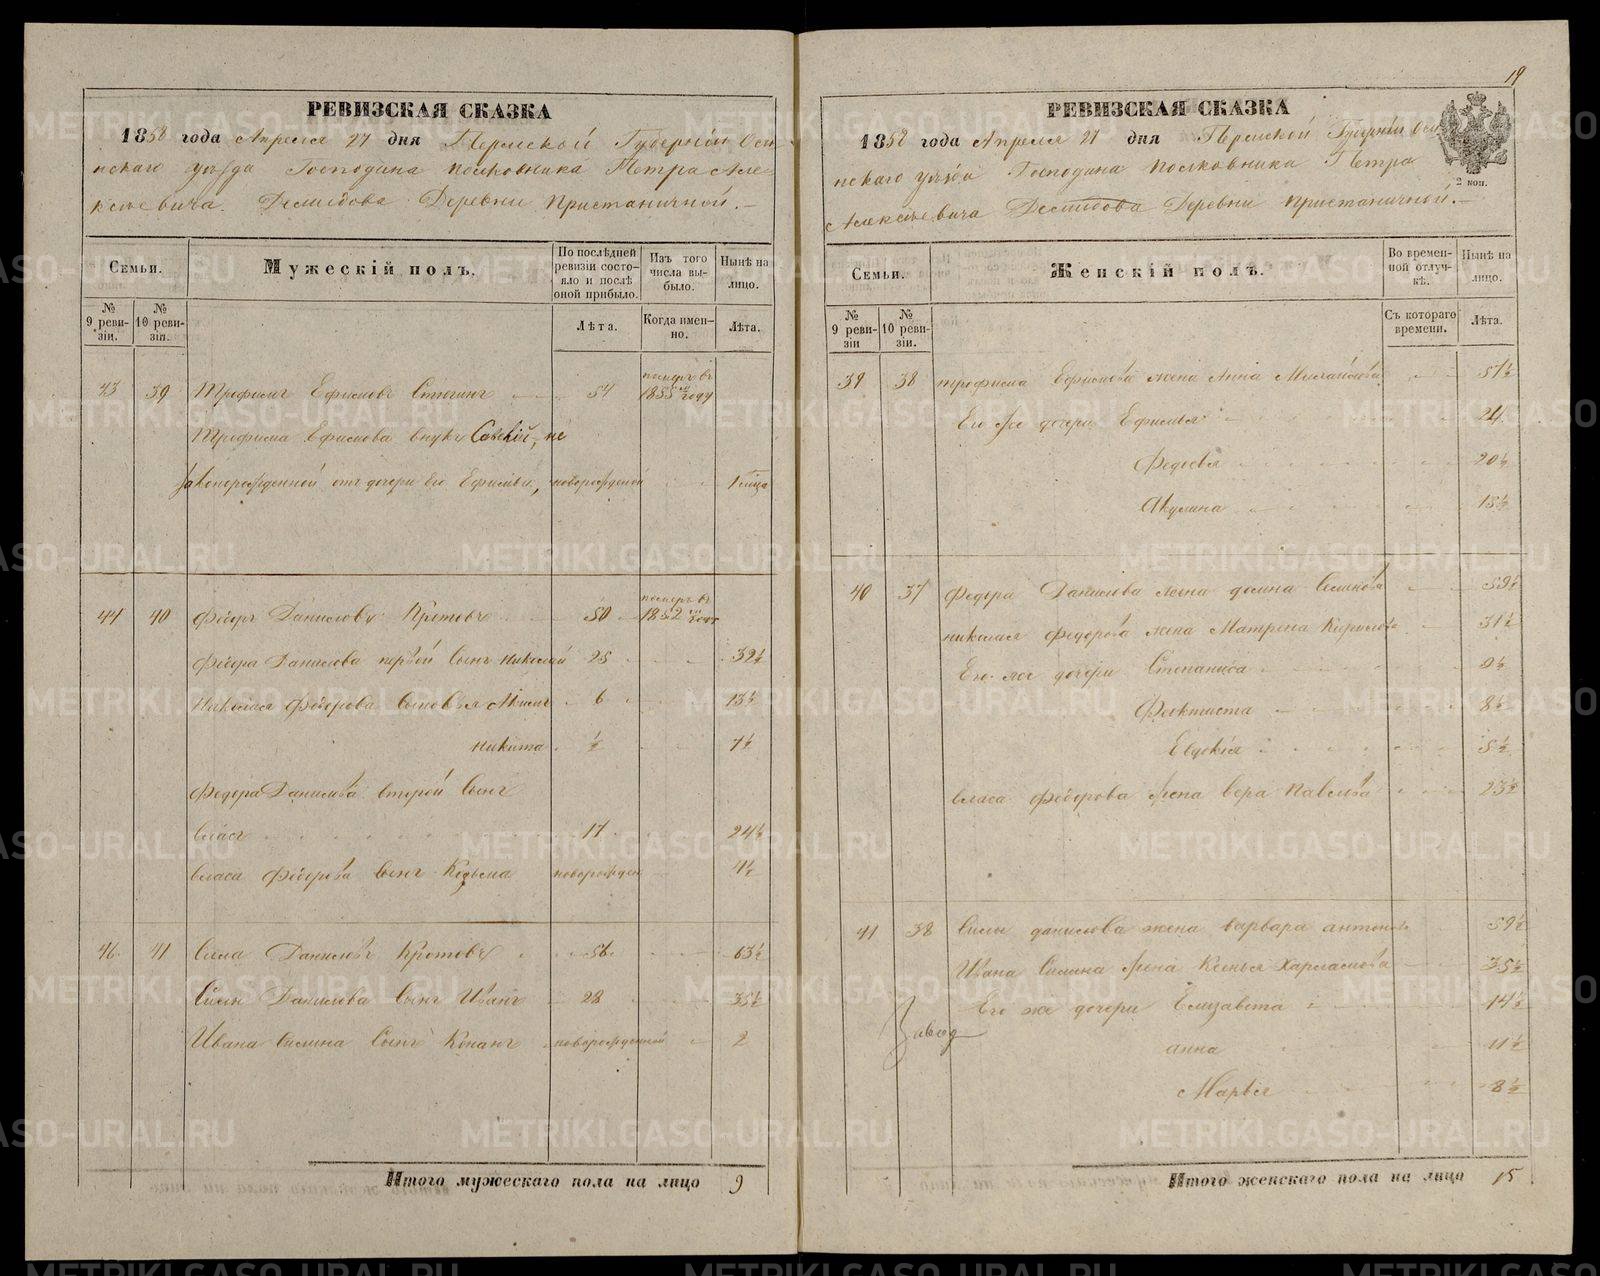 РЕВИЗСКАЯ СКАЗКА
1858 года Апреля 27 дня Пермской Губернии Осин
нскаго уезда Господина полковника Петра Але-
ксеевича Демидова Деревни Пристаничной.—
Семьи.
Мужескій полъ.
По послѣдней ревизіи состо-яло и послѣ оной прибыло.
Изъ того числа вы-было.
Нынѣ на лицо.
№ 9 реви-зіи.
№ 10 реви-зіи.
Лѣта.
Когда имен-но.
Лѣта.
43 39 Трофимъ Ефимовъ 54 1855 году
Трофима Ефимова внукъ Савелій, не
законорожденной отъ дочери его Ефимьи, новорожденой 1
44 40 Федоръ Даниловъ Кротовъ 50 1852 году
Федора Данилова первой сынъ Николай 25 32½
Николая Федорова сыновья 6 13½
Никита ½ 7½
Федора Данилова второй сынъ
Власъ 17 24½
Власа Федорова сынъ Козьма новорожден 4½
46 41 Сила Даниловъ Кротовъ 56 63½
Силы Данилова сынъ Иванъ 28 35½
Ивана Силина сынъ Конанъ новорожденной 2
Итого мужескаго пола на лицо 9
19
РЕВИЗСКАЯ СКАЗКА
1858 года Апреля 27 дня Пермской Губернии Оси
нскаго уезда Господина полковника Петра
Алексеевича Демидова Деревни Пристаничной.—
2 коп.
Семьи.
Женскій полъ.
Во времен-ной отлуч-кѣ.
Нынѣ на лицо.
№ 9 реви-зіи
№ 10 реви-зіи.
Съ котораго времени.
Лѣта.
39 38 трофима Ефимова жена Анна Михайлова 51½
Его же дочери Ефимья 24
Федосья 20½
Акулина 15½
40 37 Федора Данилова жена 59½
николая Федорова жена Матрена Кирилова 31½
Его же дочери Степанида 9½
Феоктиста 8½
Евдокія 5½
власа Федорова жена вера Павлова 23½
41 38 Силы данилова жена варвара антонов 59½
Ивана Силина жена Ксенья Харламова 35½
Его же дочери Елизавета 14½
анна 11½
Марья 8½
Завод
Итого женскаго пола на лицо 15
METRIKI.GASO-URAL.RU